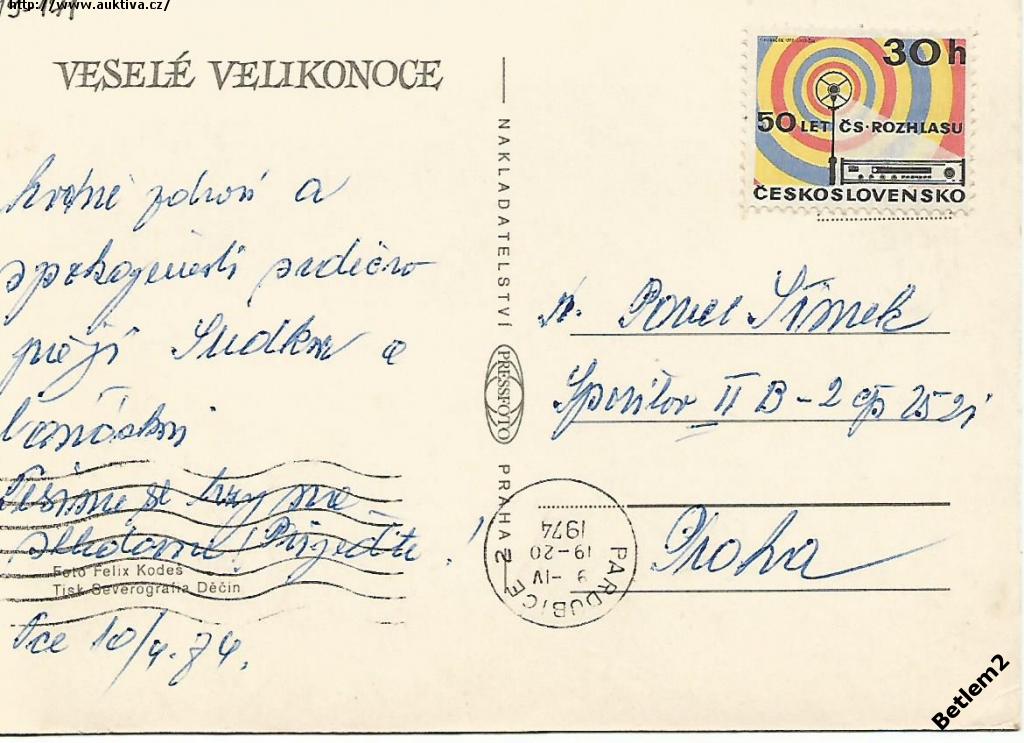 http://www.auktiva.cz/
VESELÉ VELIKONOCE
30 h
50 LET ČS. ROZHLASU
ČESKOSLOVENSKO
NAKLADATELSTVÍ PRESSFOTO PRAHA 2
hodně zdraví a
spokojenosti srdečně
přejí
Těšíme se
Přijeďte!
Foto Felix Kodeš
Tisk Severografia Děčín
Pce 10/4. 74.
Pavel Šimek
Spořilov II B-2 čp 2521
Praha
PARDUBICE 2
9 -IV
19-20
1974
Betlem2